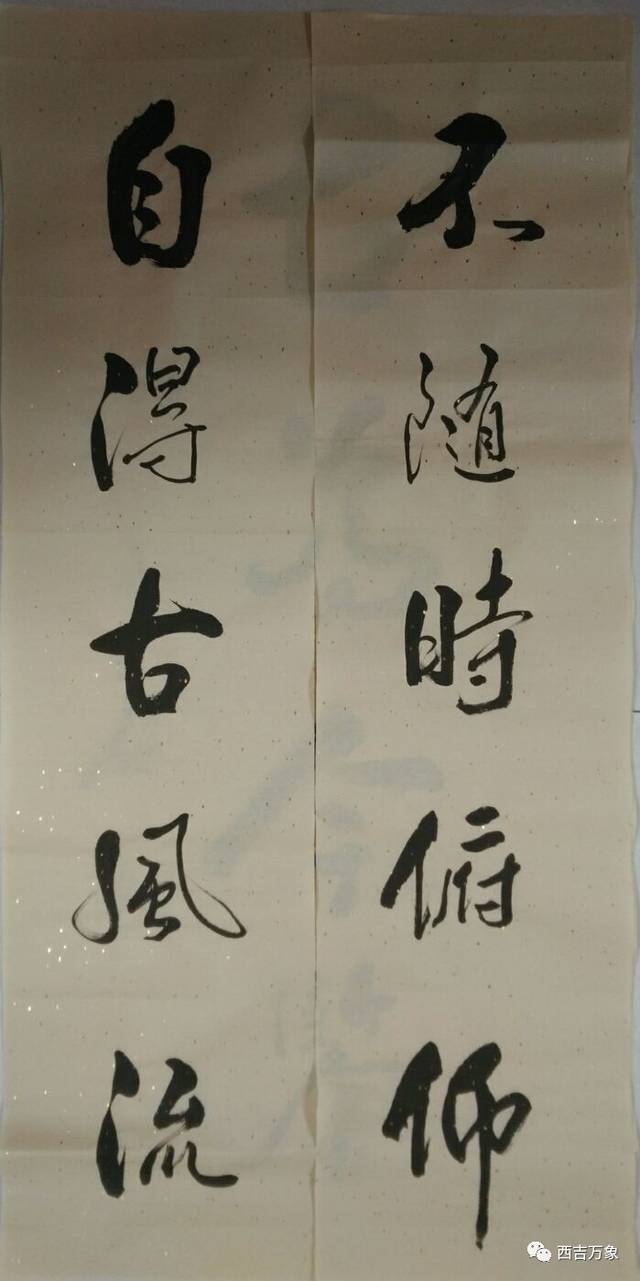 不随時俯仰
自得古風流
西吉万象